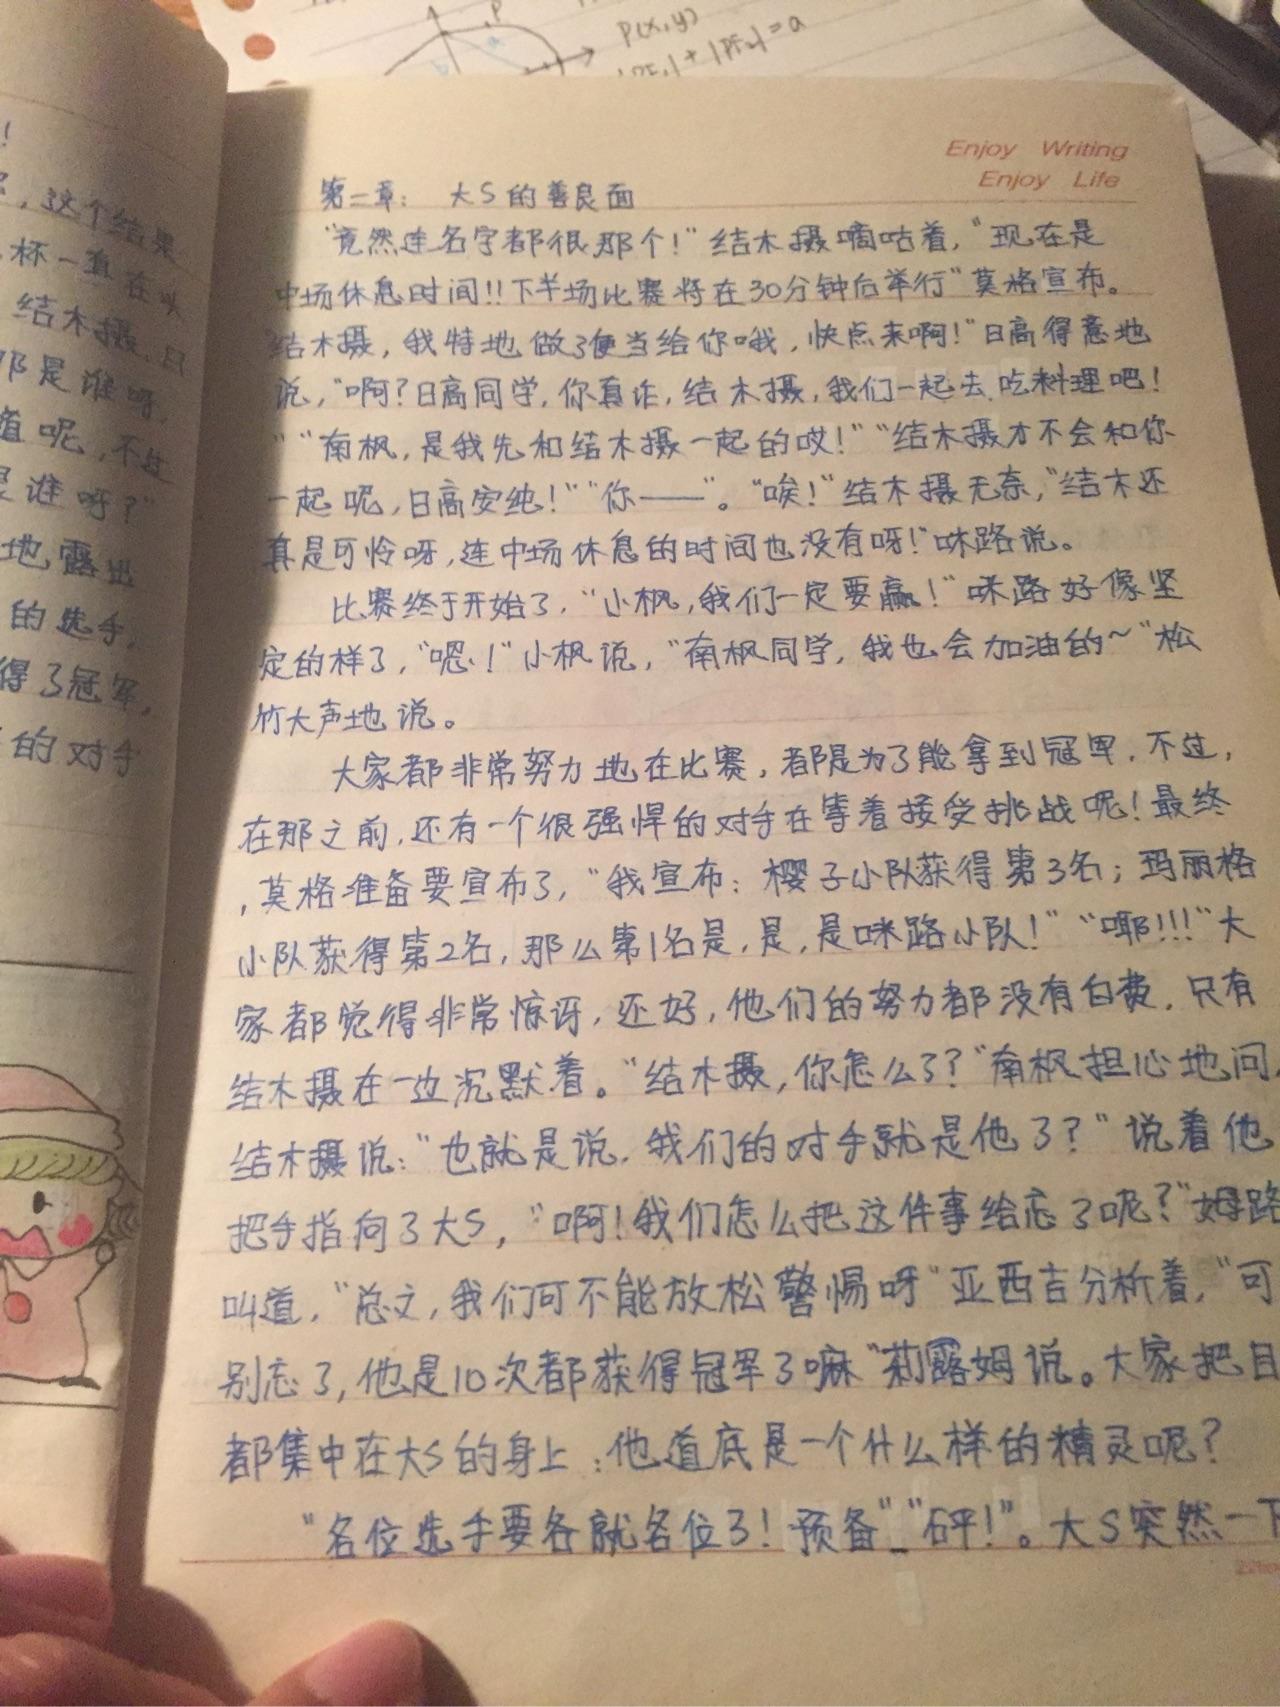 P
a
b
P(x,y)
|PF₁|+|PF₂|=a
Enjoy Writing
Enjoy Life
！
，这个结果
杯一直在
结木摄，日
那是谁呀，
道呢，不过
是谁呀？"
地露出
的选手，
得了冠军，
的对手
第二章： 大S的善良面
"竟然连名字都很那个！"结木摄嘀咕着，"现在是
中场休息时间!!下半场比赛将在30分钟后举行"莫格宣布。
"结木摄，我特地做了便当给你哦，快点来啊！"日高得意地
说，"啊？日高同学，你真诈，结木摄，我们一起去吃料理吧！
" "南枫，是我先和结木摄一起的哎！" "结木摄才不会和你
一起呢，日高安纯！" "你——"。"唉！"结木摄无奈，"结木还
真是可怜呀，连中场休息的时间也没有呀！"咪路说。
比赛终于开始了，"小枫，我们一定要赢！"咪路好像坚
定的样了，"嗯！"小枫说，"南枫同学，我也会加油的~"松
竹大声地说。
大家都非常努力地在比赛，都是为了能拿到冠军，不过，
在那之前，还有一个很强悍的对手在等着接受挑战呢！最终
，莫格准备要宣布了，"我宣布：樱子小队获得第3名；玛丽格
小队获得第2名，那么第1名是，是，是咪路小队！" "哪!!!"大
家都觉得非常惊讶，还好，他们的努力都没有白费，只有
结木摄在一边沉默着。"结木摄，你怎么了？"南枫担心地问，
结木摄说："也就是说，我们的对手就是他了？"说着他
把手指向了大S，"啊！我们怎么把这件事给忘了呢？"姆路
叫道，"总之，我们可不能放松警惕呀"亚西吉分析着，"可
别忘了，他是10次都获得冠军了嘛"莉露姆说。大家把目
都集中在大S的身上：他道底是一个什么样的精灵呢？
"名位选手要各就名位了！预备" "砰！"。大S突然一下